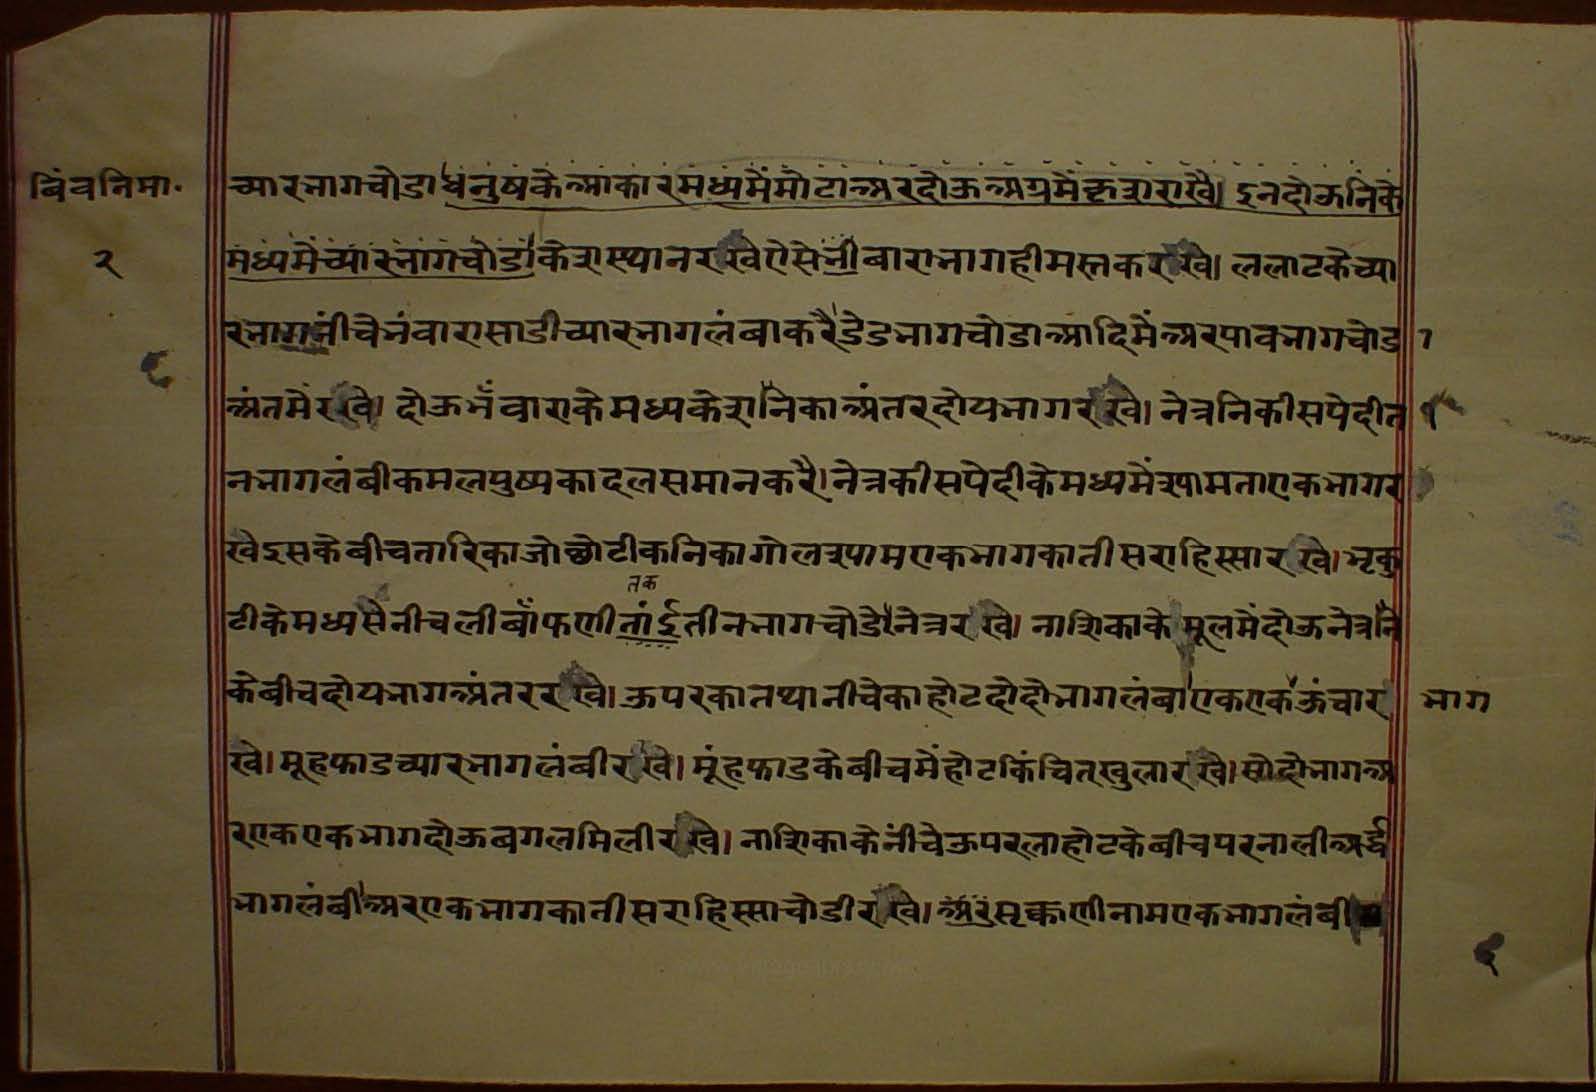 बिंबनिमा.
२
च्यारभागचोडा धनुषकेआकारमध्यमेंमोटाअरदोऊअग्रमेंकृशराखै। इनदोऊनिके
मध्यमेंच्यारभागचोडाकेशस्थानरखेऐसेनीबाराभागहीमस्तकरखे। ललाटकेच्या
रभागनीचेभंवारासाडीच्यारभागलंबाकरै डेडभागचोडाआदिमेंअरपावभागचोड ा
अंतमेंरखे। दोऊभँवाराकेमध्यकेशनिकाअंतरदोयभागरखे। नेत्रनिकीसपेदीत ी
नभागलंबीकमलपुष्पकादलसमानकरै। नेत्रकीसपेदीकेमध्यमेंश्यामताएकभागर
खेइसकेबीचतारिकाजोछोटीकनिकागोलश्यामएकभागकातीसराहिस्सारखे। भृकु
तक
टीकेमध्यसैनीचलीबाँफणीतांईतीनभागचोडेनेत्ररखे। नाशिकाकेमूलमेंदोऊनेत्रनि
केबीचदोयभागअंतररखे। ऊपरकातथानीचेकाहोटदोदोभागलंबाएकएकऊंचार भाग
खे। मूहफाडच्यारभागलंबीरखे। मूंहफाडकेबीचमेंहोटकिंचितखुलारखे। सोदोभागअ
रएकएकभागदोऊबगलमिलीरखे। नाशिकाकेनींचेऊपरलाहोटकेबीचपरनालीअर्द्ध
भागलंबीअरएकभागकातीसराहिस्साचोडीरखे। अरसृक्कणीनामएकभागलंबी